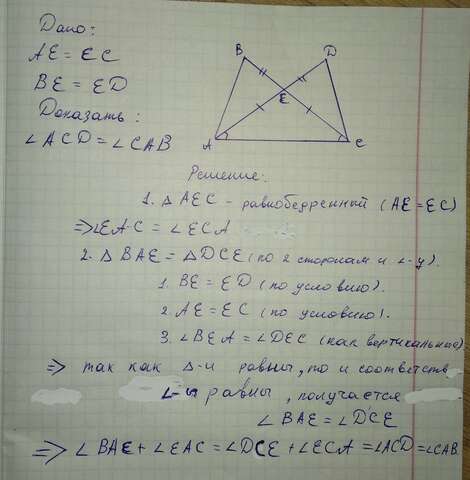 Дано:
AE = EC
BE = ED
Доказать:
∠ACD = ∠CAB
B
D
E
A
C
Решение:
1. △AEC - равнобедренный (AE = EC)
=> ∠EAC = ∠ECA
2. △BAE = △DCE (по 2 сторонам и ∠-у).
1. BE = ED (по условию).
2. AE = EC (по условию).
3. ∠BEA = ∠DEC (как вертикальные)
=> так как △-и равны, то и соответств
∠-ы равны, получается
∠BAE = ∠DCE
=> ∠BAE + ∠EAC = ∠DCE + ∠ECA = ∠ACD = ∠CAB.